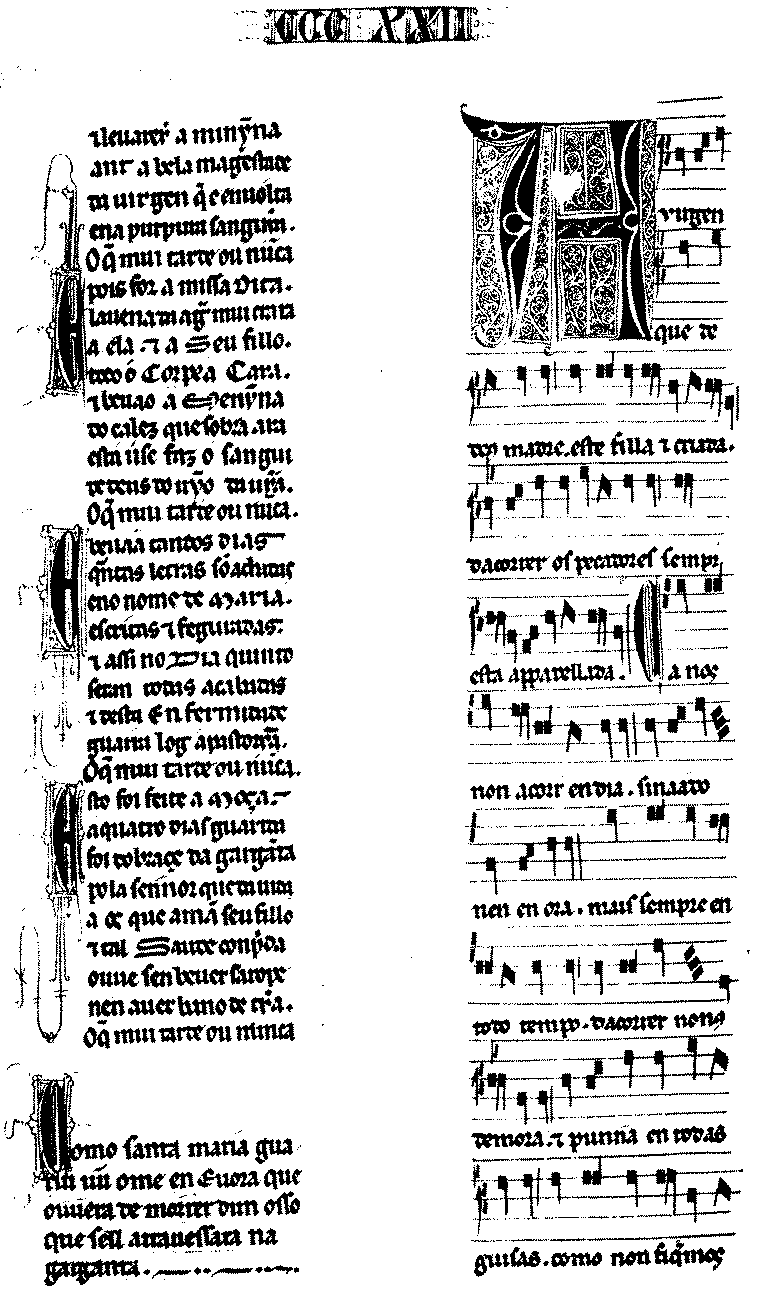 CCC XXII
⁊ leuarer̃ a minỹna
ant a bela mageſtade
da uirgen q̃ e enuolta
ena purpura ſanguin̄a.
O q̃ mui tarde ou nũca
pois foi a miſſa dita.
a ela ⁊ a Seu fillo.
todo o Corpe a Cara.
⁊ beuao a Menỹna
do calez que ſobra ara
eſta u ſe faz o ſangui
de deus do uỹo
O q̃ mui tarde ou nuca.
tantos dias
q̃ntas letras
eno nome de MARIA.
eſcritas ⁊ feguradas:
⁊ aſſi no Dia quinto
todas acabadas
⁊ deſta Enfermidade
guariu log
O q̃ mui tarde ou nũca.
Eſto foi feito a Moça.
a quatro dias guarida
foi do braço da garganta
pola ſennor que da uida
a ce que ama ſeu fillo
⁊ tal Saude conp̃da
ouue ſen beuer ſarope
nen auer bano de
O q̃ mui tarde ou nunca
Como ſanta maria gua
riu un ome en Euora que
ouuera de morrer dun oſſo
que ſell atraueſſara na
garganta.
A uirgen
que de
deus madre. eſte filla ⁊ criada.
dacorrer os pecadores ſempr
eſta apparellada. C a nos
non acorr en dia. ſinaado
nen en ora. mais ſempre en
todo tempo. dacorrer nonos
demora. ⁊ punna en todas
guiſas. como non fiq̃mos